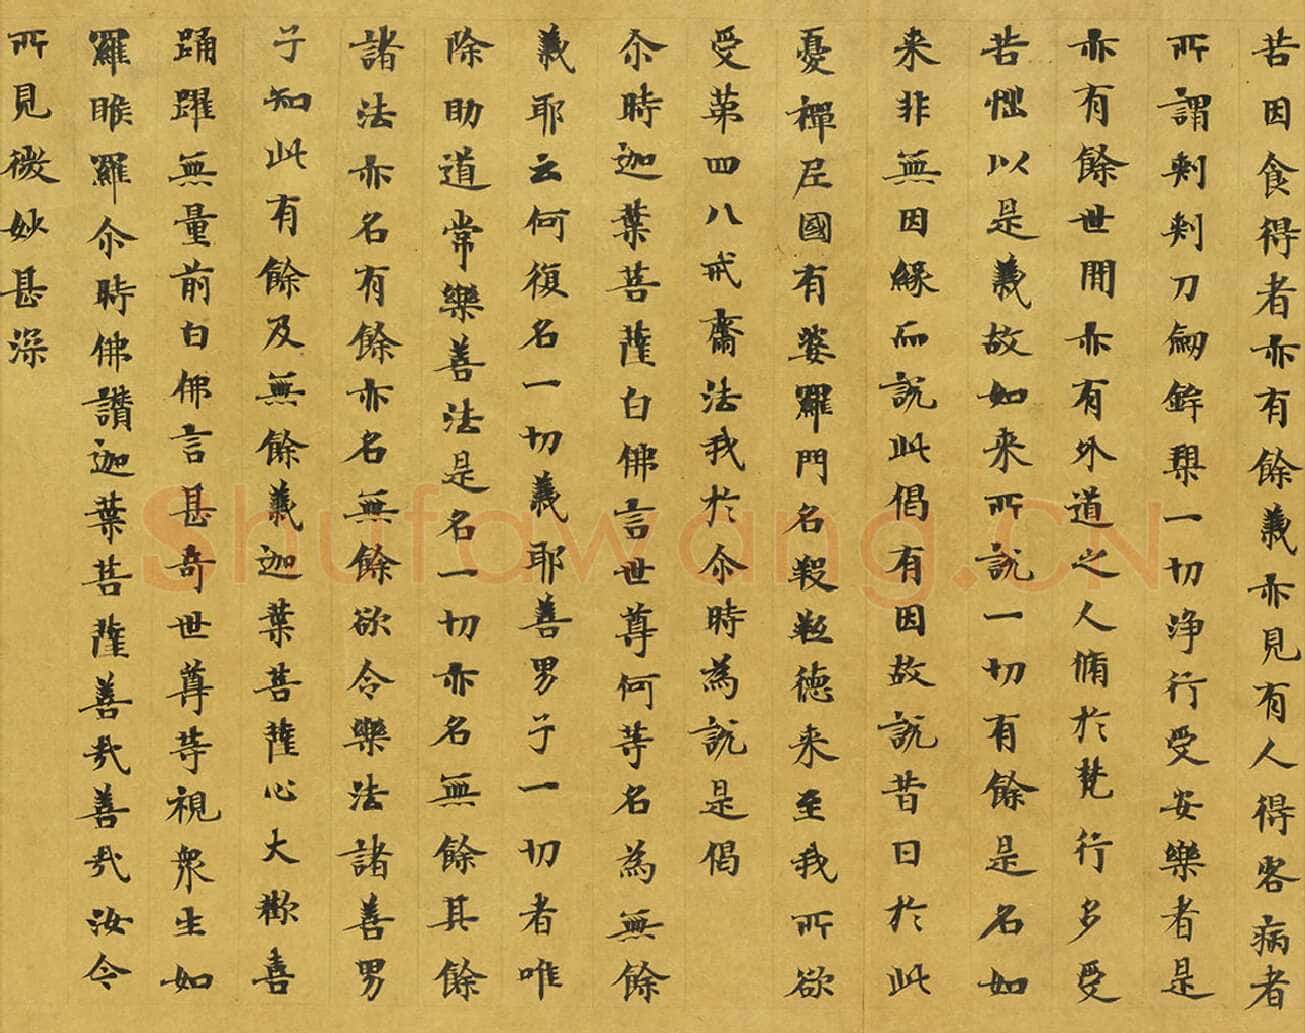 苦因食得者亦有餘義亦見有人得客病者
所謂刾刾刀劒鉾矟一切净行受安樂者是
亦有餘世間亦有外道之人脩於梵行多受
苦惱以是義故如来所説一切有餘是名如
来非無因緣而説此偈有因故説昔日於此
憂禪尼國有婆羅門名羖羝德来至我所欲
受苐四八戒齋法我於尒時為説是偈
尒時迦葉菩薩白佛言世尊何等名為無餘
義耶云何復名一切義耶善男子一切者唯
除助道常樂善法是名一切亦名無餘其餘
諸法亦名有餘亦名無餘欲令樂法諸善男
子知此有餘及無餘義迦葉菩薩心大歡喜
踊躍無量前白佛言甚奇世尊等視衆生如
羅睺羅尒時佛讃迦葉菩薩善哉善哉汝今
所見微妙甚深
Shufawang.CN